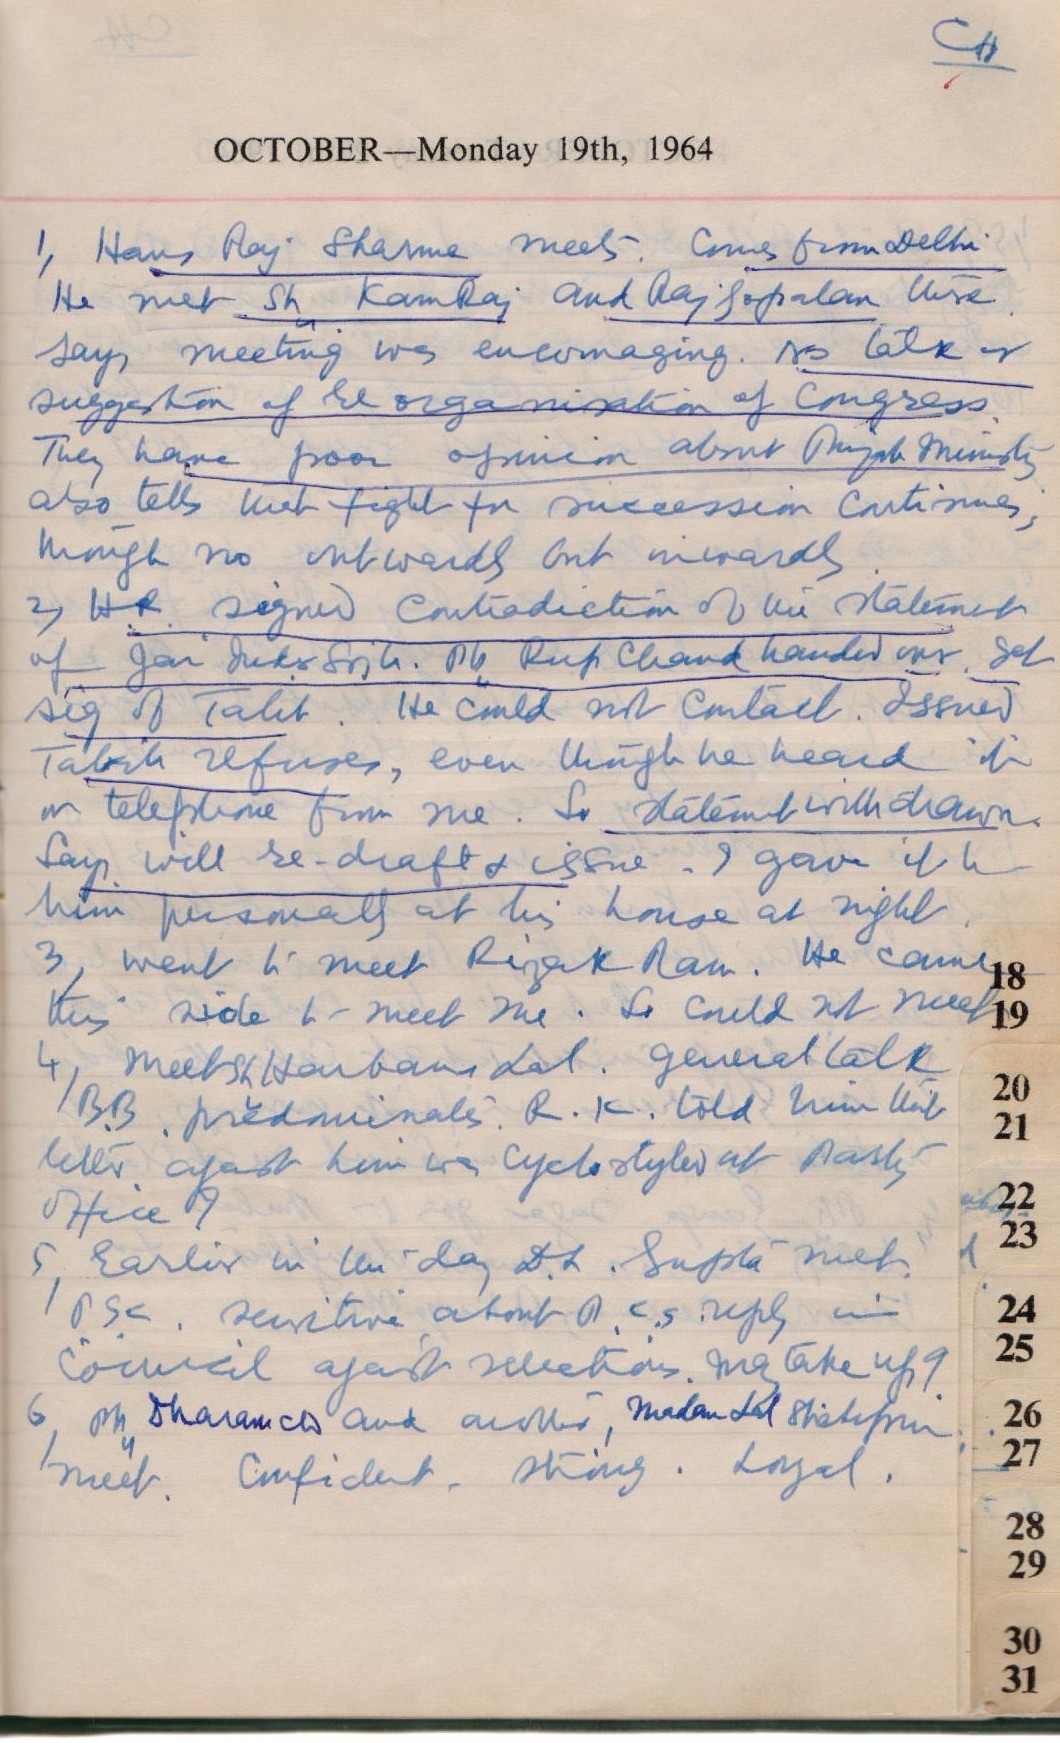 CH
OCTOBER—Monday 19th, 1964
1, Hans Raj Sharma meets. Comes from Delhi
He met Sh KamRaj and Rajgopalan there.
Says meeting was encouraging. No talk or
suggestion of Re organisation of Congress.
They have poor opinion about Punjab Ministry
also tells that fight for succession continues,
though no outwards but inwards.
2, H.R. signed contradiction of the statement
of Jai Inder Singh. Rup Chand handed over. Get
sig of Talib. He could not contact. Issued
Talib refuses, even though he heard it
on telephone from me. So statement withdrawn.
Says will re-draft & issue. I gave it to
him personally at his house at night.
3, went to meet Rizak Ram. He came
this side to meet me. So could not meet
4, meet Sh Harbans Lal. general talk
B.B. predominates. R.K. told him that
letter against him was cyclostyled at Party
office ?
5, Earlier in the day D.D. Gupta met.
P.S.C. sensitive about reply in
Council against selections. May take up ?
6, Dharam Ch and another, Madan Lal
meet. Confident. Strong. Loyal.
18
19
20
21
22
23
24
25
26
27
28
29
30
31